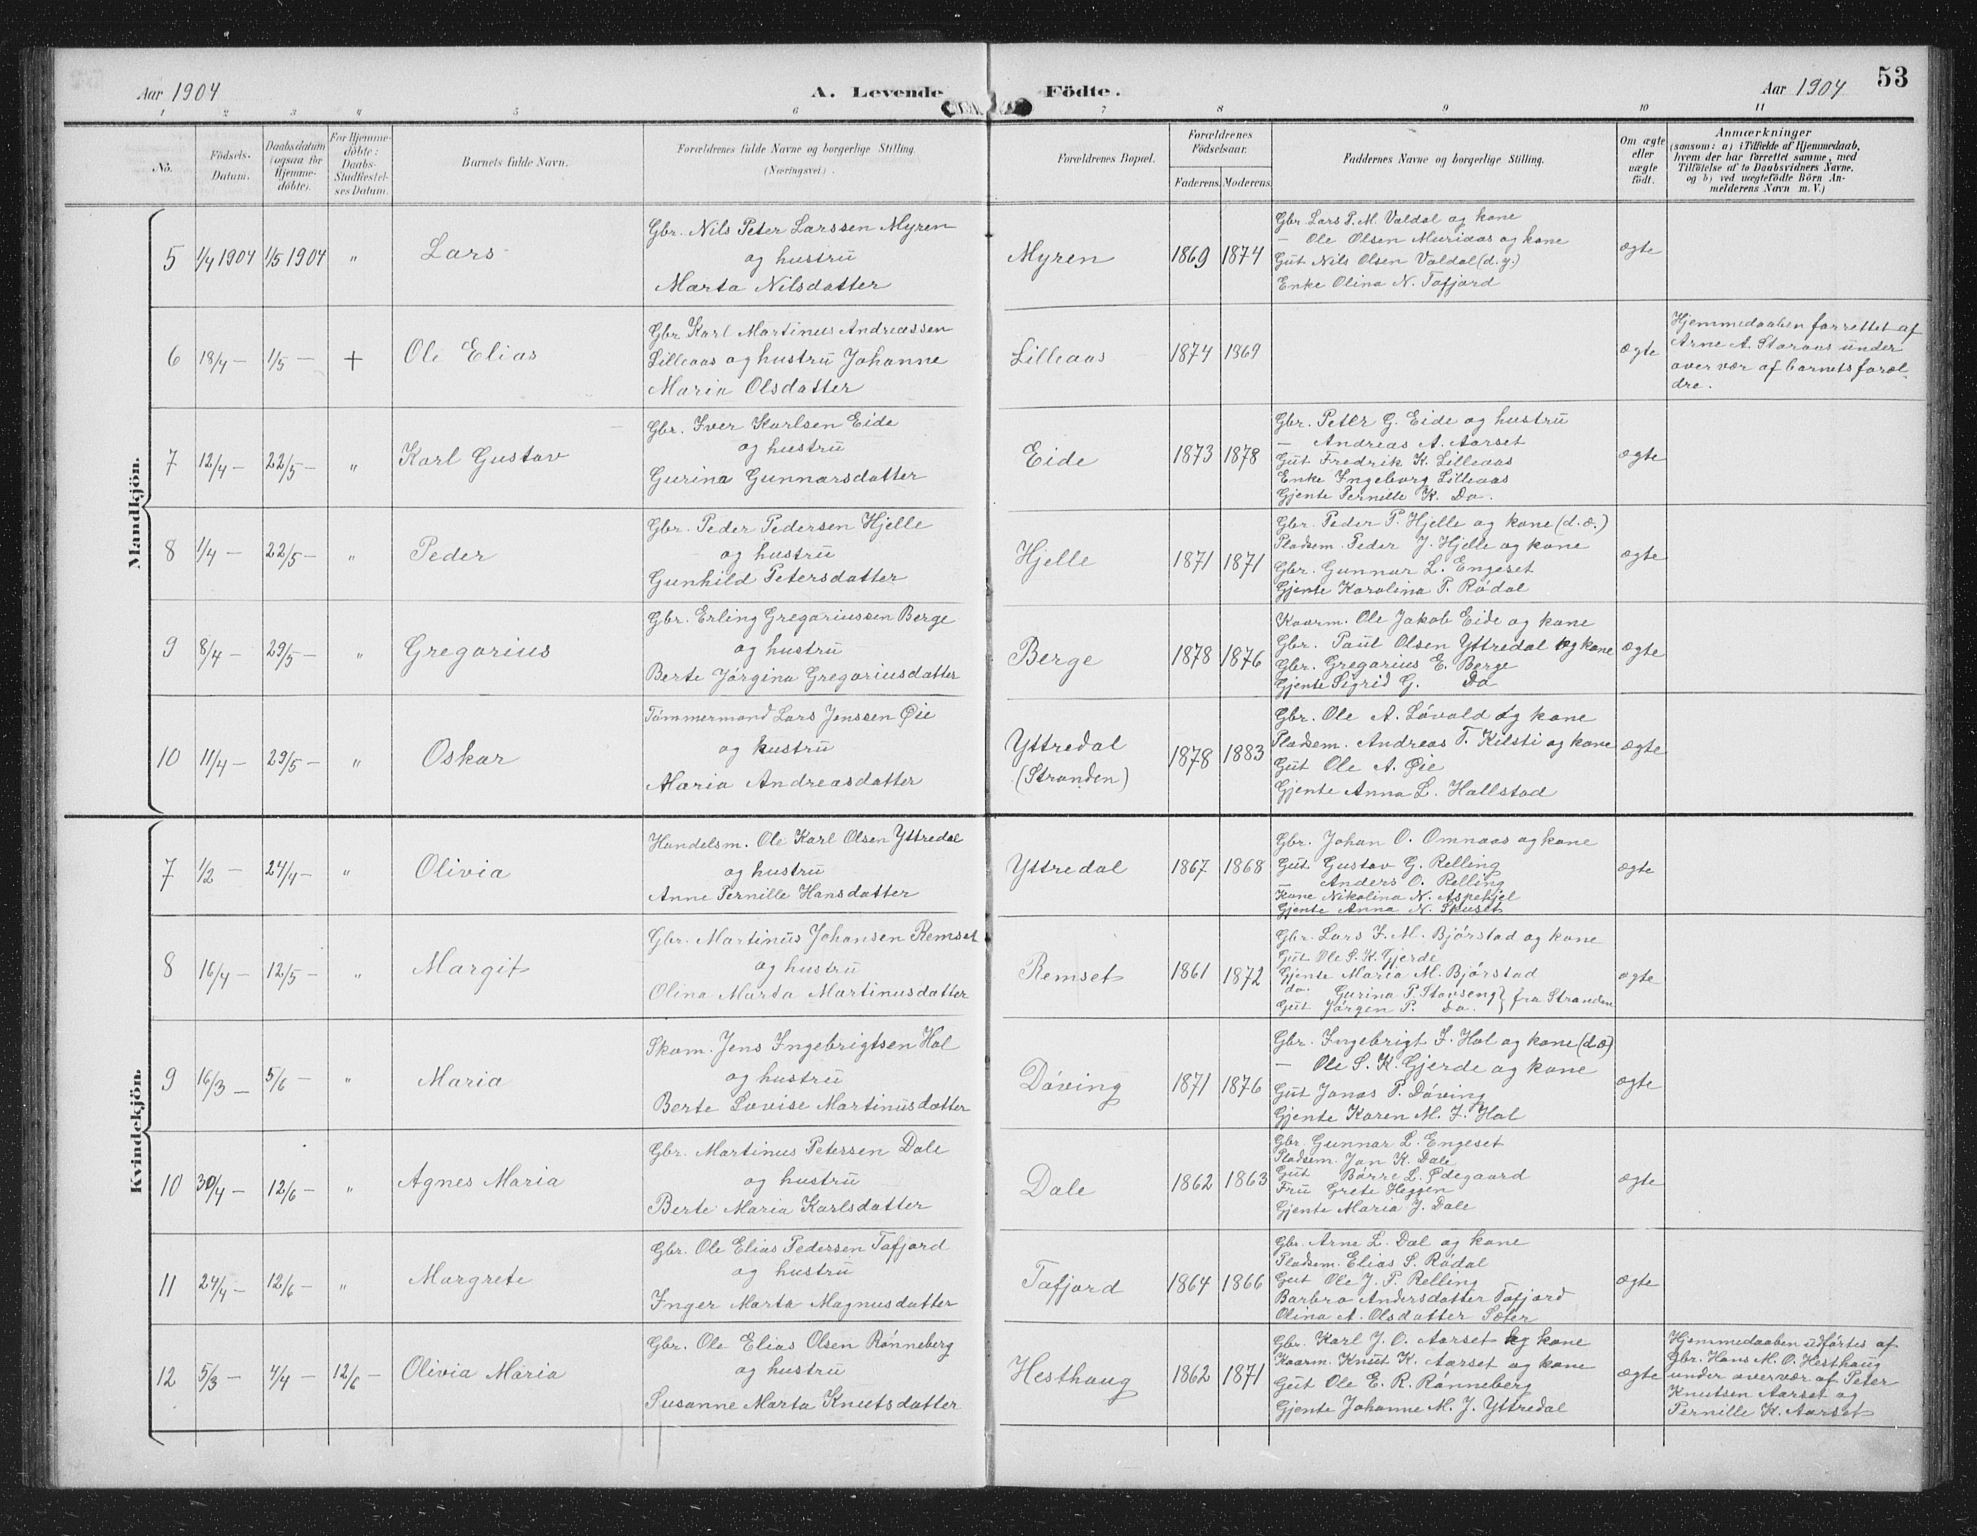 53
Aar 1904
A. Levende Födte.
Aar 1904
1 2 3 4 5 6 7 8 9 10 11
No.
Födsels-Datum.
Daabsdatum (ogsaa for Hjemme-döbte).
For Hjemme-döbte: Daabs-Stadfæstel-ses Datum.
Barnets fulde Navn.
Forældrenes fulde Navne og borgerlige Stilling. (Næringsvei.)
Forældrenes Bopæl.
Forældrenes Födselsaar.
Faderens. Moderens.
Faddernes Navne og borgerlige Stilling.
Om ægte eller uægte födt.
Anmærkninger
(saasom: a) i Tilfælde af Hjemmedaab, hvem der har forrettet samme, med Tilföielse af to Daabsvidners Navne, og b) ved uægtefödte Börn An-melderens Navn m. V.)
Mandkjön.
5 1/4 1904 1/5 1904 " Lars
Gbr. Nils Peter Larssen Myren
og hustru
Marta Nilsdatter
Myren 1869 1874
Gbr. Lars P. M. Valdal og kone
— Ole Olsen Muriaas og kone
Gut Nils Olsen Valdal (d.y.)
Enke Olina N. Tafjord
ægte
6 18/4 — 1/5 — + Ole Elias
Gbr Karl Martinus Andreassen
Lilleaas og hustru Johanne
Maria Olsdatter
Lilleaas 1874 1869
ægte
Hjemmedaaben forrettet af
Arne A. Staraas under
overvær af barnets foræl-
dre.
7 12/4 — 22/5 — " Karl Gustav
Gbr. Iver Karlsen Eide
og hustru
Gurina Gunnarsdatter
Eide 1873 1878
Gbr. Peter G. Eide og hustru
— Andreas A. Aarset
Gut Fredrik K. Lilleaas
Enke Ingeborg Lilleaas
Gjente Pernille K. Do.
ægte
8 1/4 — 22/5 — " Peder
Gbr. Peder Pedersen Hjelle
og hustru
Gunhild Petersdatter
Hjelle 1871 1871
Gbr. Peder P. Hjelle og kone (d.æ.)
Pladsem. Peder J. Hjelle og kone
Gbr. Gunnar L. Engeset
Gjente Karolina P. Rödal
ægte
9 8/4 — 29/5 — " Gregorius
Gbr. Erling Gregoriussen Berge
og hustru
Berte Jörgina Gregoriusdatter
Berge 1878 1876
Kaarm. Ole Jakob Eide og kone
Gbr. Paul Olsen Yttredal og kone
Gbr. Gregorius E. Berge
Gjente Sigrid G. Do
ægte
10 11/4 — 29/5 — " Oskar
Tömmermand Lars Jenssen Öie
og hustru
Maria Andreasdatter
Yttredal
(Stranden) 1878 1883
Gbr. Ole A. Lövold og kone
Pladsem. Andreas T. Kilsti og kone
Gut Ole A. Öie
Gjente Anna L. Hallstad
ægte
Kvindekjön.
7 1/2 — 24/4 — " Olivia
Handelsm. Ole Karl Olsen Yttredal
og hustru
Anne Pernille Hansdatter
Yttredal 1867 1868
Gbr. Johan O. Omnaas og kone
Gut Gustav G. Relling
— Anders O. Relling
Kone Nikolina N. Aspehjel
Gjente Anna N. Skuset
ægte
8 16/4 — 12/5 — " Margit
Gbr. Martinus Johansen Remset
og hustru
Olina Marta Martinusdatter
Remset 1861 1872
Gbr. Lars J. M. Bjørstad og kone
Gut Ole S. K. Gjerde
Gjente Maria M. Bjørstad
do. Gurina P. Stavseng } fra Stranden
Gut Jörgen P. Do.
ægte
9 16/3 — 5/6 — " Maria
Skom. Jens Ingebrigtsen Hol
og hustru
Berte Lovise Martinusdatter
Döving 1871 1876
Gbr. Ingebrigt J. Hol og kone (d.æ)
— Ole S. K. Gjerde og kone
Gut Jonas P. Döving
Gjente Karen M. J. Hol
ægte
10 30/4 — 12/6 — " Agnes Maria
Gbr. Martinus Peterssen Dale
og hustru
Berte Maria Karlsdatter
Dale 1862 1863
Gbr Gunnar L. Engeset
Pladsem. Jon K. Dale
Gut Börre L. Ødegaard
Fru Grete Heggen
Gjente Maria J. Dale
ægte
11 24/4 — 12/6 — " Margrete
Gbr. Ole Elias Pedersen Tafjord
og hustru
Inger Marta Magnusdatter
Tafjord 1864 1866
Gbr. Arne L. Dal og kone
Pladsem. Elias S. Rødal
Gut Ole J. P. Relling
Barbro Andersdatter Tafjord
Olina A. Olsdatter Sæter
ægte
12 5/3 — 4/4 — 12/6 — Olivia Maria
Gbr. Ole Elias Olsen Rönneberg
og hustru
Susanne Marta Knutsdatter
Hesthaug 1862 1871
Gbr. Karl J. O. Aarset og kone
Kaarm. Knut K. Aarset og kone
Gut Ole E. R. Rönneberg
Gjente Johanne M. J. Yttredal
ægte
Hjemmedaaben udförtes af
Gbr. Hans M. O. Hesthaug
under overvær af Peter
Knutsen Aarset og
Pernille K. Aarset